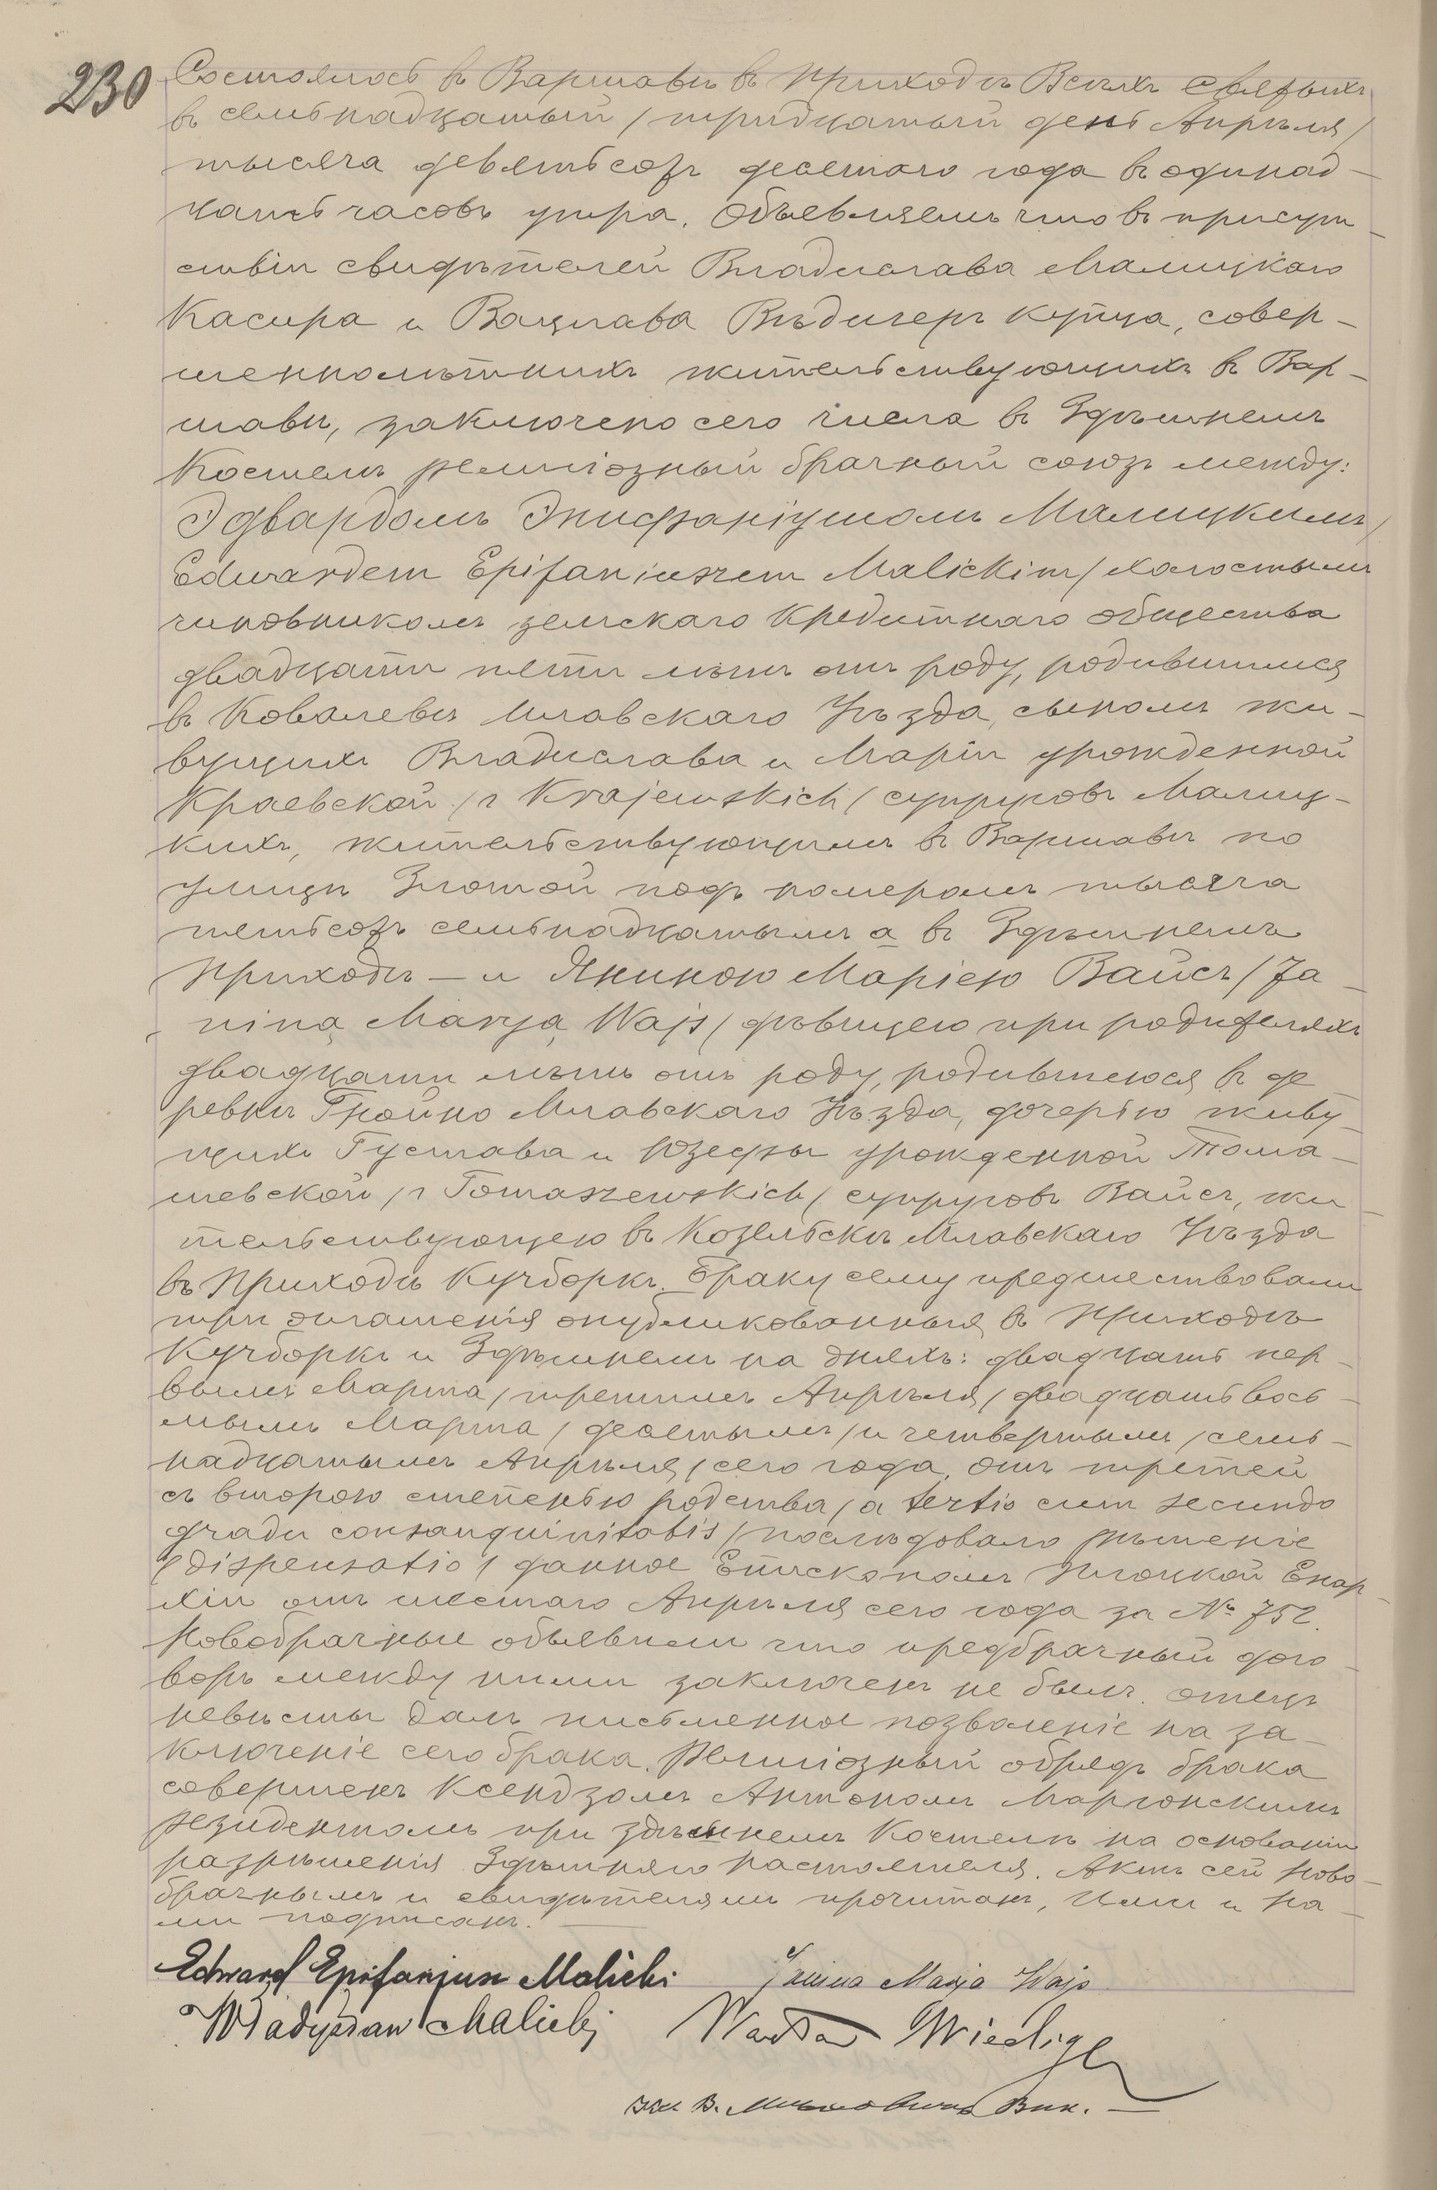 230
Состоялось в Варшаве в приходе Всехъ Святыхъ
в семьнадцатый / тридцатый день Апреля /
тысяча девятьсотъ десятаго года в одинад-
цать часовъ утра. Объявляемъ что въ присут-
ствіи свидѣтелей Владислава Малицкаго
Касира и Вацлава Вѣдигеръ купца, совер-
шеннолѣтнихъ жительствующихъ въ Вар-
шавѣ, заключено сего числа въ Здѣшнемъ
Костелѣ религіозный брачный союзъ между:
Эдвардомъ Эпифаніушомъ Малицкимъ /
Edwardem Epifaniuszem Malickim / холостымъ
чиновникомъ земскаго Кредитнаго общества
двадцати пяти лѣтъ отъ роду, родившимся
въ Ковалевѣ Млавскаго Уѣзда, сыномъ жи-
вущихъ Владислава и Маріи урожденной
Краевской / z Krajewskich / супруговъ Малиц-
кихъ, жительствующимъ въ Варшавѣ по
улицѣ Злотой подъ номеромъ тысяча
пятьсотъ семьнадцатымъ а въ Здѣшнемъ
приходѣ — и Яниною Маріею Вайсъ / Ja-
niną Marją Wajs / дѣвицею при родителяхъ
двадцати лѣтъ отъ роду, родившеюся въ де
ревнѣ Гнойно Млавскаго Уѣзда, дочерью живу-
щихъ Густава и Юзефы урожденной Тома-
шевской / z Tomaszewskich / супруговъ Вайсъ, жи-
тельствующею въ Козельскѣ Млавскаго Уѣзда
въ Приходѣ Кучборкъ. Браку сему предшествовали
три оглашенія опубликованныя въ приходѣ
Кучборкъ и Здѣшнемъ на дняхъ: двадцать пер-
вымъ Марта / третимъ Апрѣля / двадцать вось-
мымъ Марта / десятымъ / и четвертымъ / семь-
надцатымъ Апрѣля / сего года, отъ третей
съ второю степенью родства / a tertio cum secundo
gradu consanquinitatis / послѣдовало рѣшеніе
/ dispensatio / данное Епископомъ Плоцкой Епар-
хіи отъ шестаго Апрѣля сего года за № 752.
Новобрачные объявили что предбрачный дого-
воръ между ними заключенъ не былъ. Отецъ
невѣсты далъ письменное позволеніе на за-
ключеніе сего брака. Религіозный обрядъ брака
совершенъ Ксендзомъ Антономъ Маргонскимъ
резидентомъ при здѣшнемъ Костелѣ на основаніи
разрѣшенія Здѣшняго Настоятеля. Актъ сей Ново-
брачнымъ и свидѣтелямъ прочитанъ, Ими и На-
ми подписанъ. —
Edward Epifanjusz Malicki Janina Marja Wajs
Władysław Malicki Wacław Wiediger
Вик. —